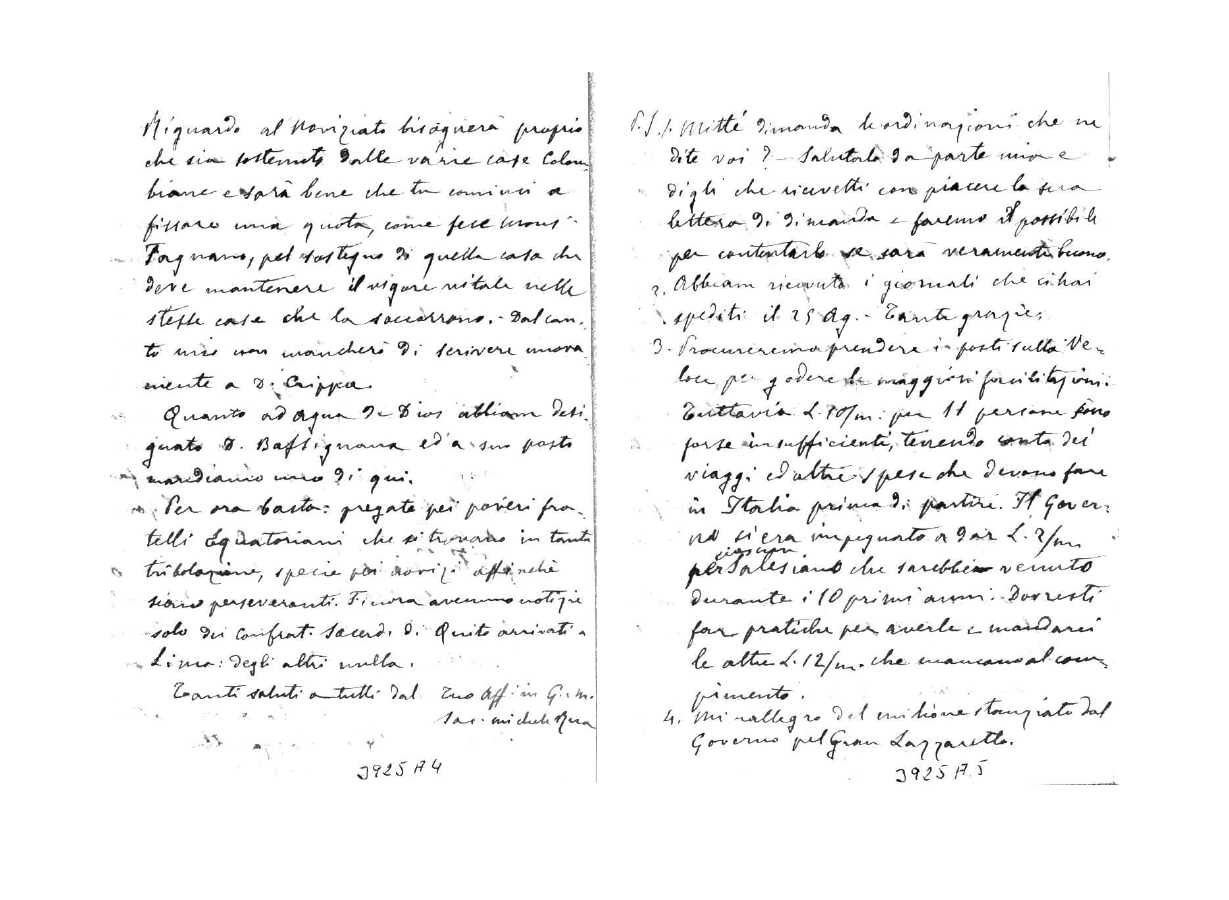 Riguardo al Noviziato bisognerà proprio
che sia sostenuto dalle varie case Colom
biane e sarà bene che tu cominci a
fissare una quota, come fece Mons.
Fagnano, pel sostegno di quella casa che
deve mantenere il vigore vitale nelle
stesse case che la soccorrono. - Dal can.
to mio non mancherò di scrivere nuova
mente a D. Crippa.
Quanto ad Agua de Dios abbiam desi.
gnato D. Bassignana ed a suo posto
mandiamo uno di qui.
Per ora basta: pregate pei poveri fra.
telli Equatoriani che si trovano in tanta
tribolazione, specie pei novizi affinchè
siano perseveranti. Finora avemmo notizie
solo dei confrat. Sacerd. di Quito arrivati a
Lima: degli altri nulla.
Tanti saluti a tutti dal Tuo Aff. in G. e M.
Sac. Michele Rua
3925 A 4
P.S. 1. Mitté dimanda le ordinazioni che ne
dite voi? - Salutalo da parte mia e
digli che ricevetti con piacere la sua
lettera di dimanda e faremo il possibile
per contentarlo se sarà veramente buono.
2. Abbiam ricevuto i giornali che ci hai
spediti il 25 Ag. - Tante grazie.
3. Procureremo prendere i posti sulla Ve-
loce per godere maggiori facilitazioni.
Tuttavia L. 10/m. per 11 persone sono
forse insufficienti, tenendo conto dei
viaggi ed altre spese che devono fare
in Italia prima di partire. Il Gover-
no si era impegnato a dar L. 2/m
per ciascun Salesiano che sarebbe venuto
durante i 10 primi anni. Dovresti
far pratiche per averle e mandarci
le altre L. 12/m. che mancano al com-
pimento.
4. Mi rallegro del milione stanziato dal
Governo pel Gran Lazzaretto.
3925 A 5